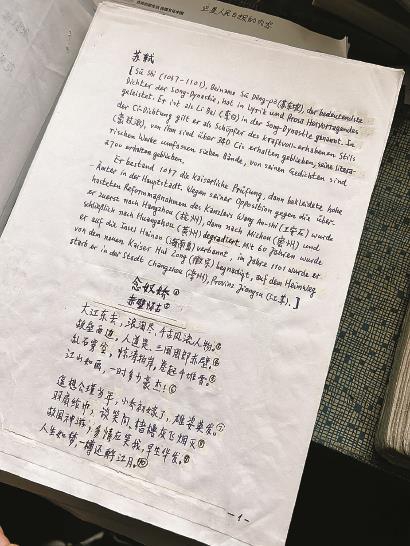 苏轼
[Sū Shì (1037-1101), Beiname Sū Dōng-pō (苏东坡), der bedeutendste
Dichter der Song-Dynastie, hat in Lyrik und Prosa Hervorragendes
geleistet. Er ist als Li Bai (李白) in der Song-Dynastie genannt. In
der Ci-Dichtung gilt er als Schöpfer des kraftvoll-erhabenen Stils
(豪放派), von ihm sind über 340 Cis erhalten geblieben, seine litera-
rischen Werke umfassen sieben Bände, von seinen Gedichten sind
2700 erhalten geblieben.
Er bestand 1057 die kaiserliche Prüfung, dann bekleidete hohe
Ämter in der Hauptstadt. Wegen seiner Opposition gegen die über-
hasteten Reformmaßnahmen des Kanzlers Wang An-shi (王安石) wurde
er zuerst nach Hangzhou (杭州), dann nach Michou (密州) und
schließlich nach Huangzhou (黄州) degradiert. Mit 60 Jahren wurde
er auf die Insel Hainan (海南岛) verbannt, im Jahre 1101 wurde er
von dem neuen Kaiser Hui Zong (徽宗) begnadigt, auf dem Heimweg
starb er in der Stadt Changzhou (常州), Provinz Jiangsu (江苏).]
念奴娇①
赤壁怀古②
大江东去,浪淘尽,千古风流人物。③
故垒西边,人道是,三国周郎赤壁。④
乱石穿空,惊涛拍岸,卷起千堆雪。⑤
江山如画,一时多少豪杰!⑥
遥想公瑾当年,小乔初嫁了,雄姿英发。⑦
羽扇纶巾,谈笑间,樯橹灰飞烟灭。⑧
故国神游,多情应笑我,早生华发。⑨
人生如梦,一樽还酹江月。⑩
-1-